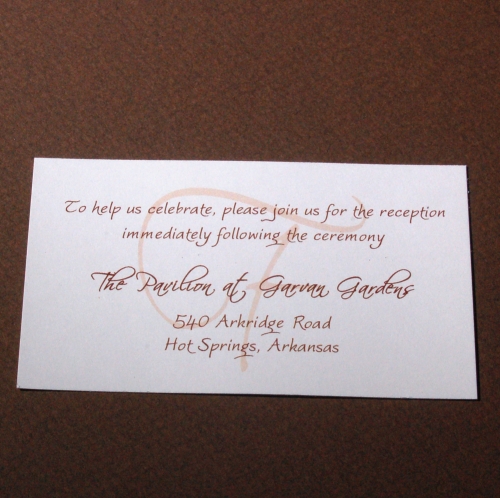 To help us celebrate, please join us for the reception
immediately following the ceremony
The Pavilion at Garvan Gardens
540 Arkridge Road
Hot Springs, Arkansas